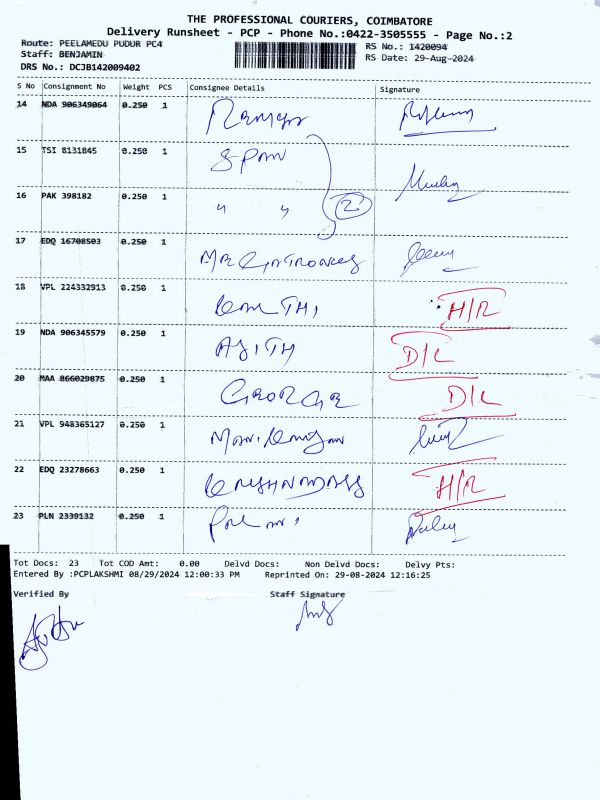 THE PROFESSIONAL COURIERS, COIMBATORE
Delivery Runsheet - PCP - Phone No.:0422-3505555 - Page No.:2
Route: PEELAMEDU PUDUR PC4
RS No.: 1420094
Staff: BENJAMIN
RS Date: 29-Aug-2024
DRS No.: DCJB142009402
S No Consignment No Weight PCS Consignee Details Signature
14 NDA 906349064 0.250 1
15 TSI 8131845 0.250 1
16 PAK 398182 0.250 1 " " 2
17 EDQ 16708503 0.250 1
18 VPL 224332913 0.250 1 H/R
19 NDA 906345579 0.250 1 AJITH D/L
20 MAA 866029875 0.250 1 GEORGE D/L
21 VPL 948365127 0.250 1
22 EDQ 23278663 0.250 1 H/R
23 PLN 2339132 0.250 1
Tot Docs: 23 Tot COD Amt: 0.00 Delvd Docs: Non Delvd Docs: Delvy Pts:
Entered By :PCPLAKSHMI 08/29/2024 12:00:33 PM Reprinted On: 29-08-2024 12:16:25
Verified By Staff Signature